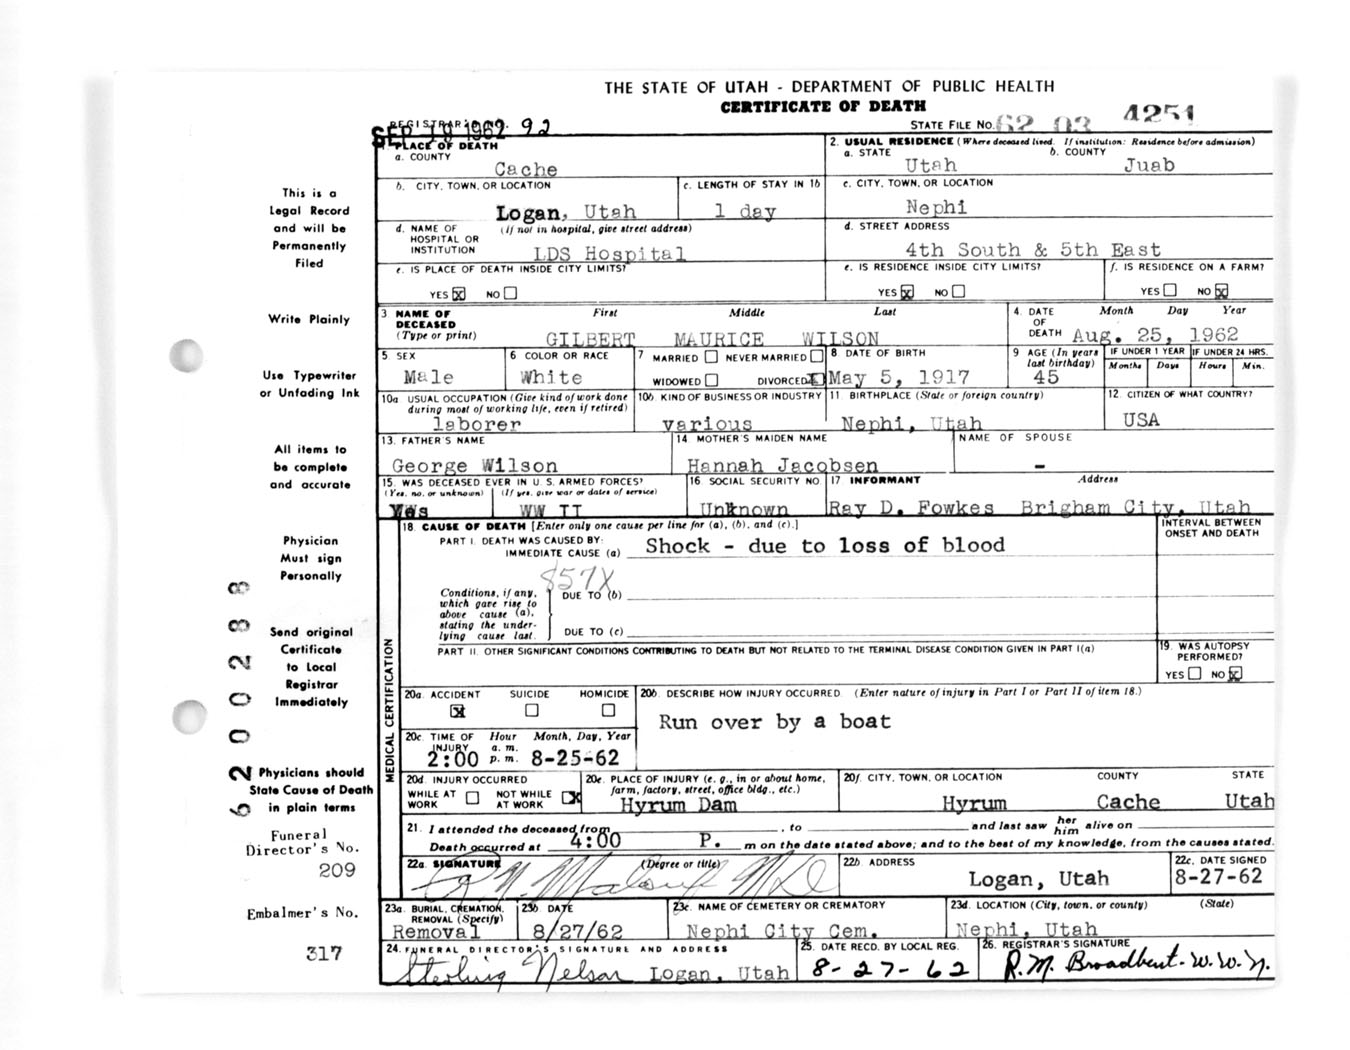 THE STATE OF UTAH - DEPARTMENT OF PUBLIC HEALTH
CERTIFICATE OF DEATH
REGISTRAR'S NO. 92
SEP 19 1962
STATE FILE NO. 62 03 4251
1. PLACE OF DEATH
a. COUNTY
Cache
2. USUAL RESIDENCE (Where deceased lived. If institution: Residence before admission)
a. STATE b. COUNTY
Utah Juab
b. CITY, TOWN, OR LOCATION
Logan, Utah
c. LENGTH OF STAY IN 1b
1 day
c. CITY, TOWN, OR LOCATION
Nephi
d. NAME OF HOSPITAL OR INSTITUTION (If not in hospital, give street address)
LDS Hospital
d. STREET ADDRESS
4th South & 5th East
e. IS PLACE OF DEATH INSIDE CITY LIMITS?
YES X NO
e. IS RESIDENCE INSIDE CITY LIMITS?
YES X NO
f. IS RESIDENCE ON A FARM?
YES NO X
3 NAME OF DECEASED (Type or print) First Middle Last
GILBERT MAURICE WILSON
4. DATE OF DEATH Month Day Year
Aug. 25, 1962
5 SEX
Male
6 COLOR OR RACE
White
7 MARRIED NEVER MARRIED
WIDOWED DIVORCED X
8 DATE OF BIRTH
May 5, 1917
9 AGE (In years last birthday)
45
IF UNDER 1 YEAR IF UNDER 24 HRS.
Months Days Hours Min.
10a USUAL OCCUPATION (Give kind of work done during most of working life, even if retired)
laborer
10b. KIND OF BUSINESS OR INDUSTRY
various
11. BIRTHPLACE (State or foreign country)
Nephi, Utah
12. CITIZEN OF WHAT COUNTRY?
USA
13. FATHER'S NAME
George Wilson
14 MOTHER'S MAIDEN NAME
Hannah Jacobsen
NAME OF SPOUSE
-
15. WAS DECEASED EVER IN U. S. ARMED FORCES?
(Yes, no, or unknown) (If yes, give war or dates of service)
Yes WW II
16 SOCIAL SECURITY NO.
Unknown
17 INFORMANT Address
Ray D. Fowkes Brigham City, Utah
MEDICAL CERTIFICATION
18. CAUSE OF DEATH [Enter only one cause per line for (a), (b), and (c).]
PART I. DEATH WAS CAUSED BY:
IMMEDIATE CAUSE (a) Shock - due to loss of blood
INTERVAL BETWEEN ONSET AND DEATH
857X
Conditions, if any, which gave rise to above cause (a), stating the underlying cause last.
DUE TO (b)
DUE TO (c)
PART II. OTHER SIGNIFICANT CONDITIONS CONTRIBUTING TO DEATH BUT NOT RELATED TO THE TERMINAL DISEASE CONDITION GIVEN IN PART I(a)
19. WAS AUTOPSY PERFORMED?
YES NO X
20a. ACCIDENT SUICIDE HOMICIDE
X
20b. DESCRIBE HOW INJURY OCCURRED. (Enter nature of injury in Part I or Part II of item 18.)
Run over by a boat
20c. TIME OF INJURY Hour a. m. p. m. Month, Day, Year
2:00 8-25-62
20d. INJURY OCCURRED
WHILE AT WORK NOT WHILE AT WORK X
20e. PLACE OF INJURY (e. g., in or about home, farm, factory, street, office bldg., etc.)
Hyrum Dam
20f. CITY, TOWN, OR LOCATION COUNTY STATE
Hyrum Cache Utah
21. I attended the deceased from , to and last saw her him alive on
Death occurred at 4:00 P. m on the date stated above; and to the best of my knowledge, from the causes stated.
22a. SIGNATURE (Degree or title)
22b. ADDRESS
Logan, Utah
22c. DATE SIGNED
8-27-62
23a. BURIAL, CREMATION, REMOVAL (Specify)
Removal
23b DATE
8/27/62
23c. NAME OF CEMETERY OR CREMATORY
Nephi City Cem.
23d. LOCATION (City, town, or county) (State)
Nephi, Utah
24. FUNERAL DIRECTOR'S SIGNATURE AND ADDRESS
Sterling Nelson Logan, Utah
25. DATE RECD. BY LOCAL REG.
8-27-62
26. REGISTRAR'S SIGNATURE
R.M. Broadbent-W.W.N.
This is a
Legal Record
and will be
Permanently
Filed
Write Plainly
Use Typewriter
or Unfading Ink
All items to
be complete
and accurate
Physician
Must sign
Personally
Send original
Certificate
to Local
Registrar
Immediately
Physicians should
State Cause of Death
in plain terms
Funeral
Director's No.
209
Embalmer's No.
317